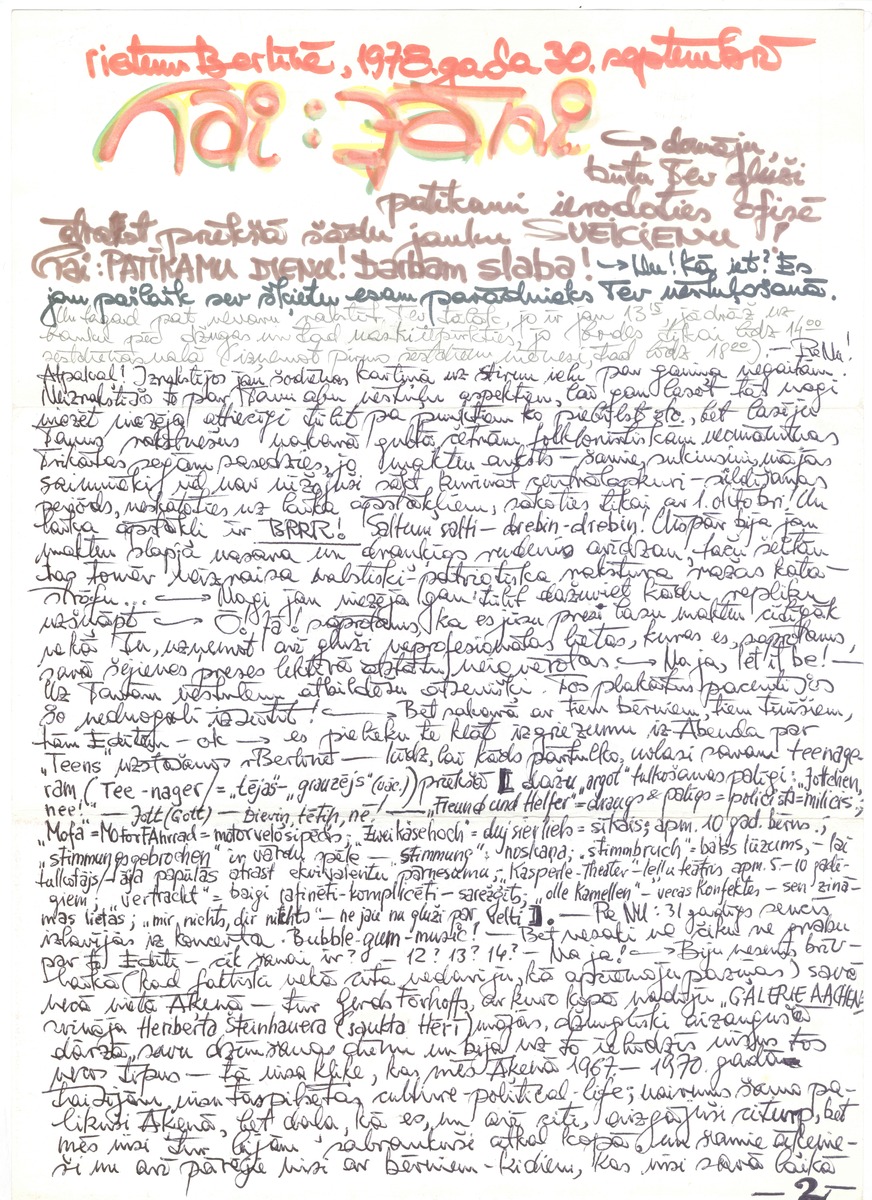 rietumu Berlīnē, 1978. gada 30. septembrī
Čai: Jāni
→ domāju
būtu Tev gluži
patīkami ierodoties ofisē
atrast priekšā šādu jauku SVEICIENU!
Čai: PATĪKAMU DIENU! Darbam slaba! → Nu! Kā iet? Es
jau pašlaik sev šķietu esam parādnieks Tev vēstuļošanā.
Un tagad pat nevaru rakstīt Tev tālāk, jo ir jau 13¹⁵, jādrāž uz
banku pēc džungas un tad uz iepirkties, jo bodes tikai līdz 14⁰⁰
sestdienās vaļā (izņemot pirmo sestdienu mēnesī, tad līdz 18⁰⁰). — Re Nu!
Atpakaļ! Izrakstījos jau šodienas kartiņā uz Stirnu ielu par gaisa negaitām.
Neizrakstījos to par Tamu abu vēstuļu aspektiem, lai gan lasot tās nagi
niezēja attiecīgi tūlīt pa punktam ko piebilst, bet lasīju
Tamus rakstnešus vakarā gultā, četrām folkloristiskām
Trīkārtas segām sasedzies, jo makten auksts — šamie, mājas
saimnieki vēl nav sākt kurināt centrālapkuri — sildīšanas
periods, neskatoties uz laika apstākļiem, sākoties tikai ar 1. oktobri! Un
laika apstākļi ir BRRR! Saltum salti — drebin-drebin! Vispār bija jau
maktan slapja vasara un draņķīgs rudenis arīdzan, taču
tas tomēr neizraisa valstiski-patriotiska rakstura mazas kata-
strofu... → Nagi jau niezēja gan tūlīt dažuviet kādu repliku
uzšņāpt → Ō! Jā! saprotams, ka es jūsu presi lasu maktem cītīgāk
nekā Tu, uzņemot arī gluži neprofesionālas lietas, kuras es, saprotams,
savā šejienes preses lektīrā atstātu neievērotas. → Na ja, let it be! —
Uz Tantam vēstulēm atbildēšu atsevišķi. Tos plakātus pacentīšos
šo nedēļogali izsūtīt! ← Bet sakarā ar tiem bērniem, tiem tīņiem,
tām Edītēm — ok → es pielieku te klāt izgriezumu iz Abenda par
„Teens" uzstāšanos rBerlīnē — lūdz, lai kāds pārtulko, nolasi savam teenage-
ram (Tee-nager/= „tējas"- „grauzējs" (vāc.)) priekšā [ dažu „argot" tulkošanas palīgi: „Jottchen,
nee!" — Jott (Gott) — dieviņ, tētiņ, nē! — „Freund und Helfer" = draugs & palīgs = policists = milicis;
„Mofa" = MotorFAhrrad = motorvelosipēds; „Zweikäsehoch" = divi sieri liels = sīkais; apm. 10 gad. bērns.;
„stimmungsgebrochen" ir vārdu spēle — „Stimmung": noskaņa; „stimmbruch" = balss lūzums, — lai
tulkotājs/-āja papūlas atrast ekvivalentu pārnesumu; „Kasperle-Theater" — leļļu teātris apm. 5.-10 gadī-
giem; „vertrackt" = baigi rafinēti-komplicēti — sarežģīts; „olle Kamellen" — vecas Konfektes — sen zinā-
mas lietas; „mir nichts, dir nichts" — ne jau nu gluži par velti ]. — Re NU: 31 gadīgs sencis
izlavījās iz koncerta. Bubble-gum-music! — Bet nesaki nu čiku ne grabu
par to Edīte — cik šamai ir? 8 — 12? 13? 14? — Na ja! → Biju nesenā brīv-
laikā (kad faktiski nekā cita nedarīju, kā apciemoju paziņas) savā
vecā vietā Akenā — tur Gerds Forhoffs, ar kuru kopā vadīju „GALERIE AACHEN",
svinēja Heriberta Šteinhauera (saukta Hēri) mājās, džungliski aizaugušā
dārzā, savu dzimšanas dienu un bija uz to ielūdzis visus tos
vecos tipus — tā visa klike, kas mēs Akenā 1967 — 1970. gados
taisījām visu tāspilsētas culture-political-life; vairums šamo pa-
likuši Akenā, bet daļa, kā es, un arī citi, aizgājuši citurp, bet
mēs visi tur bijām sabraukuši atkal kopā, un šamie ākenie-
ši nu arī pārējie visi ar bērniem-kidiem, kas visi savā laikā
— 2 —